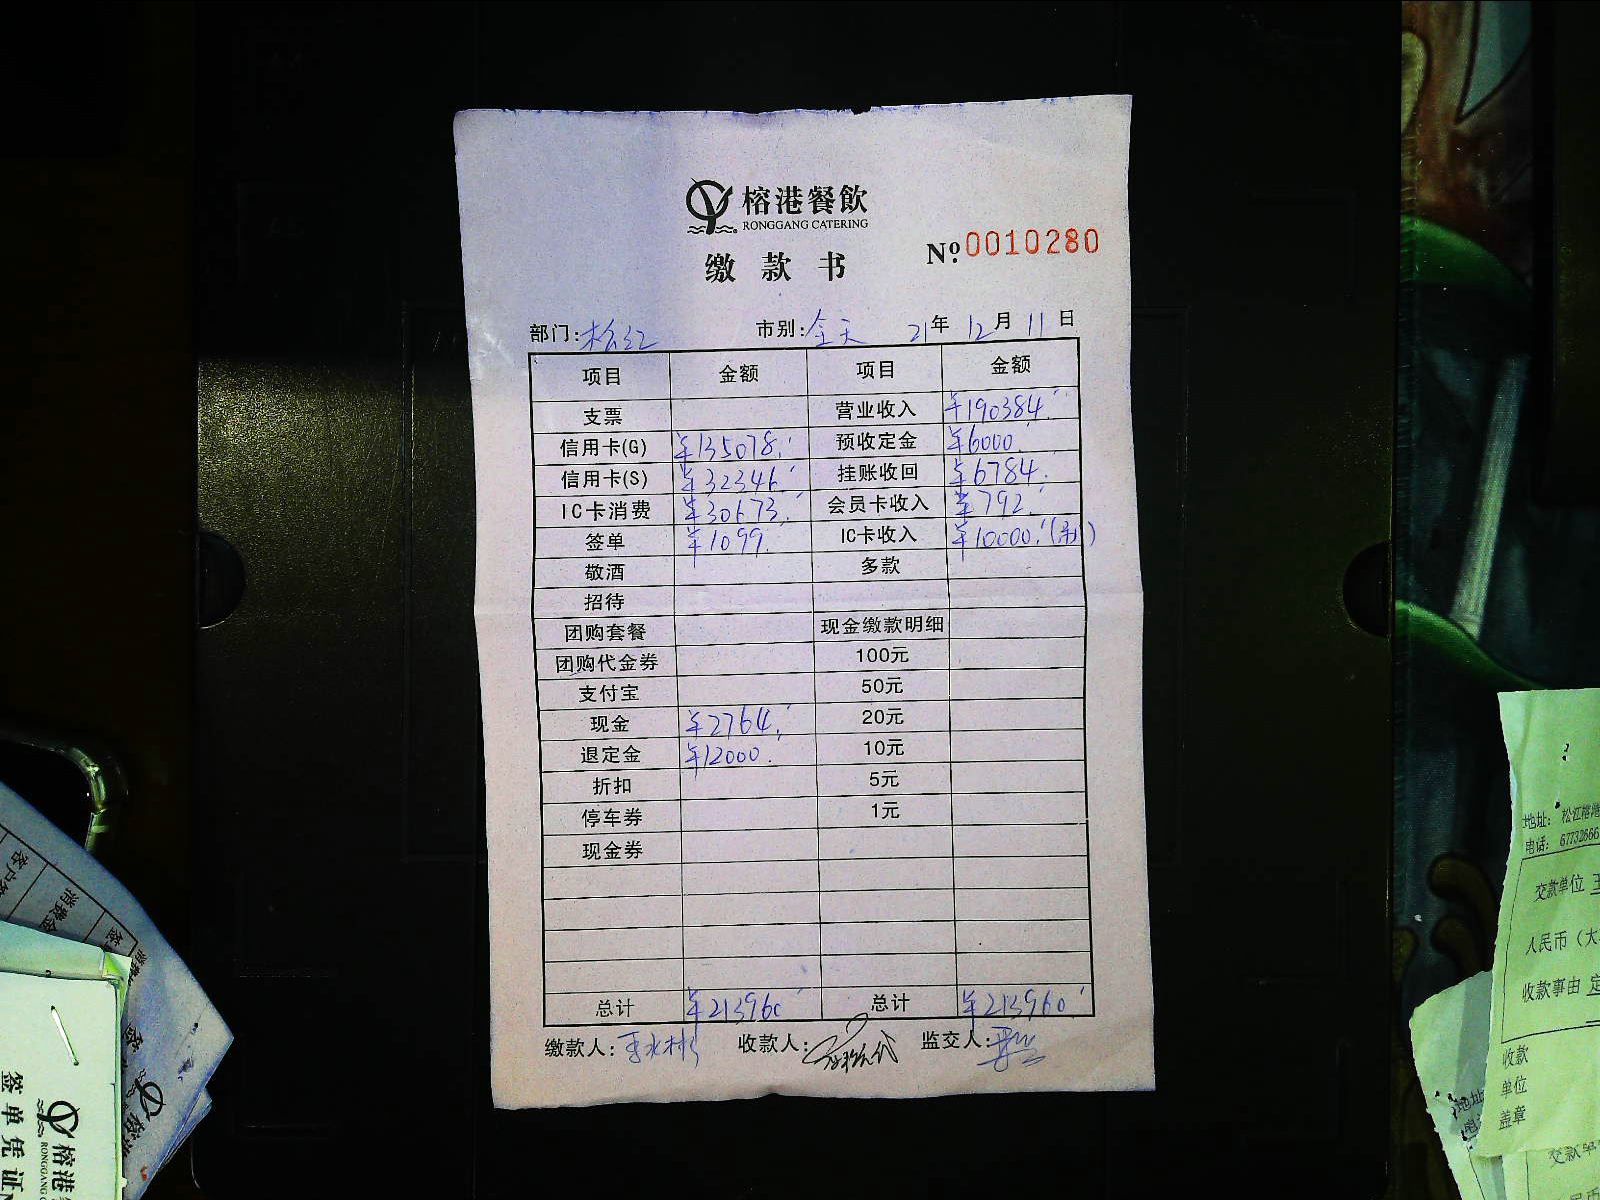 榕港餐飲
RONGGANG CATERING
缴款书
No.0010280
部门:松江 市别:全天 21年12月11日
项目 金额 项目 金额
支票 营业收入 ¥190384.
信用卡(G) ¥135078. 预收定金 ¥6000.
信用卡(S) ¥32346 挂账收回 ¥6784.
IC卡消费 ¥30673. 会员卡收入 ¥792.
签单 ¥1099. IC卡收入 ¥10000.
敬酒 多款
招待
团购套餐 现金缴款明细
团购代金券 100元
支付宝 50元
现金 ¥2764. 20元
退定金 ¥12000. 10元
折扣 5元
停车券 1元
现金券
总计 ¥213960 总计 ¥213960
缴款人: 收款人: 监交人:
地址:松江榕港
电话:67732666
交款单位 王
人民币(大
收款事由 定
收款
单位
盖章
交款单
地址
消费金
榕港
RONGGANG
签单凭证